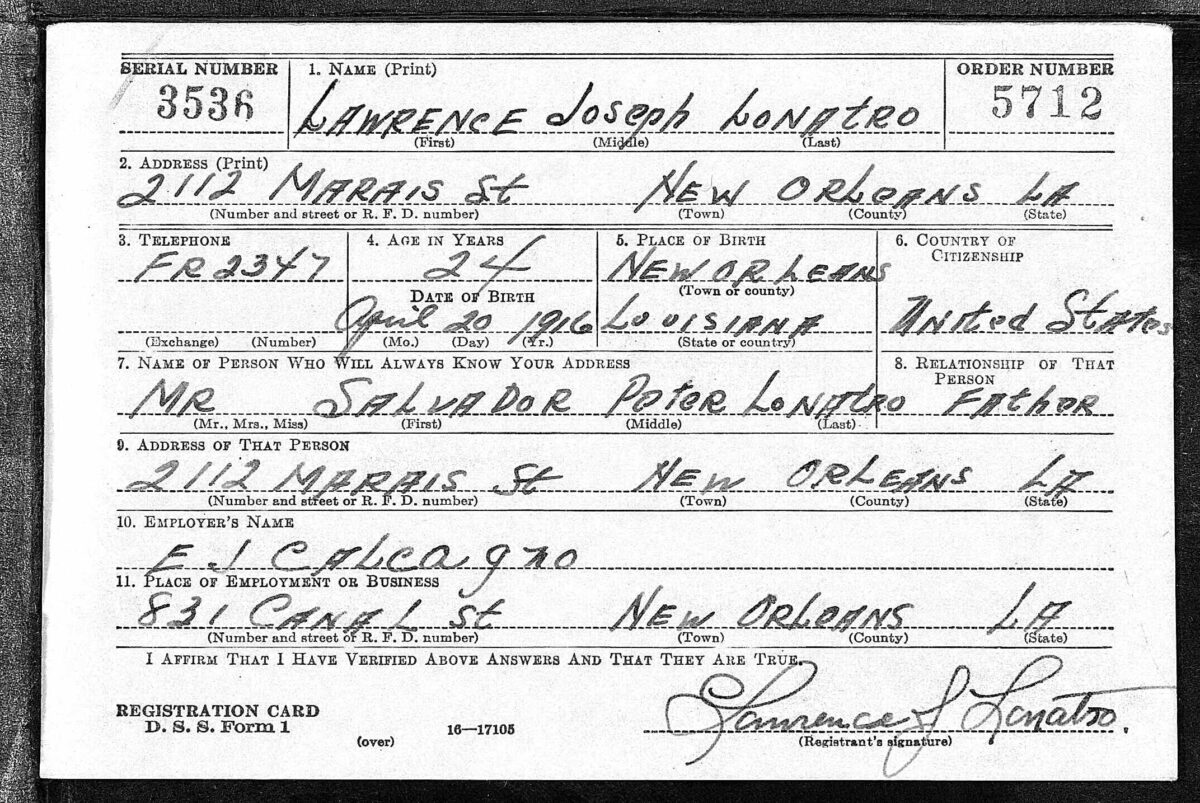 SERIAL NUMBER 1. NAME (Print) ORDER NUMBER
3536 LAWRENCE Joseph LONATRO 5712
(First) (Middle) (Last)
2. ADDRESS (Print)
2112 MARAIS St NEW ORLEANS LA
(Number and street or R. F. D. number) (Town) (County) (State)
3. TELEPHONE 4. AGE IN YEARS 5. PLACE OF BIRTH 6. COUNTRY OF
CITIZENSHIP
FR 2347 24 NEW ORLEANS
(Town or county)
DATE OF BIRTH
April 20 1916 LOUISIANA United States
(Exchange) (Number) (Mo.) (Day) (Yr.) (State or country)
7. NAME OF PERSON WHO WILL ALWAYS KNOW YOUR ADDRESS 8. RELATIONSHIP OF THAT
PERSON
MR SALVADOR Peter LONATRO FATher
(Mr., Mrs., Miss) (First) (Middle) (Last)
9. ADDRESS OF THAT PERSON
2112 MARAIS St NEW ORLEANS LA
(Number and street or R. F. D. number) (Town) (County) (State)
10. EMPLOYER'S NAME
E J CALCAgno
11. PLACE OF EMPLOYMENT OR BUSINESS
831 CANAL St NEW ORLEANS LA
(Number and street or R. F. D. number) (Town) (County) (State)
I AFFIRM THAT I HAVE VERIFIED ABOVE ANSWERS AND THAT THEY ARE TRUE.
Lawrence J Lonatro.
REGISTRATION CARD
D. S. S. Form 1 16—17105
(over) (Registrant's signature)